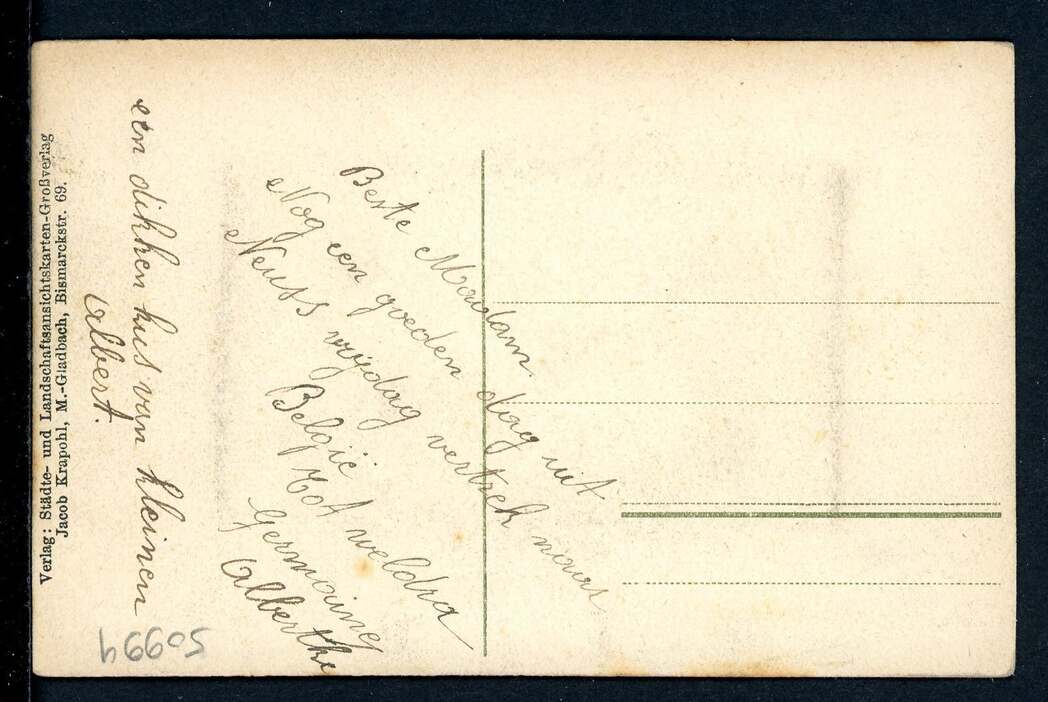 Beste Madam.
Nog een goeden dag uit
Neuss vrijdag vertrek naar
België
Tot weldra
Germaine
Alberthe
een dikken kus van kleinen
Albert.
Verlag: Städte- und Landschaftsansichtskarten-Großverlag
Jacob Krapohl, M.-Gladbach, Bismarckstr. 69.